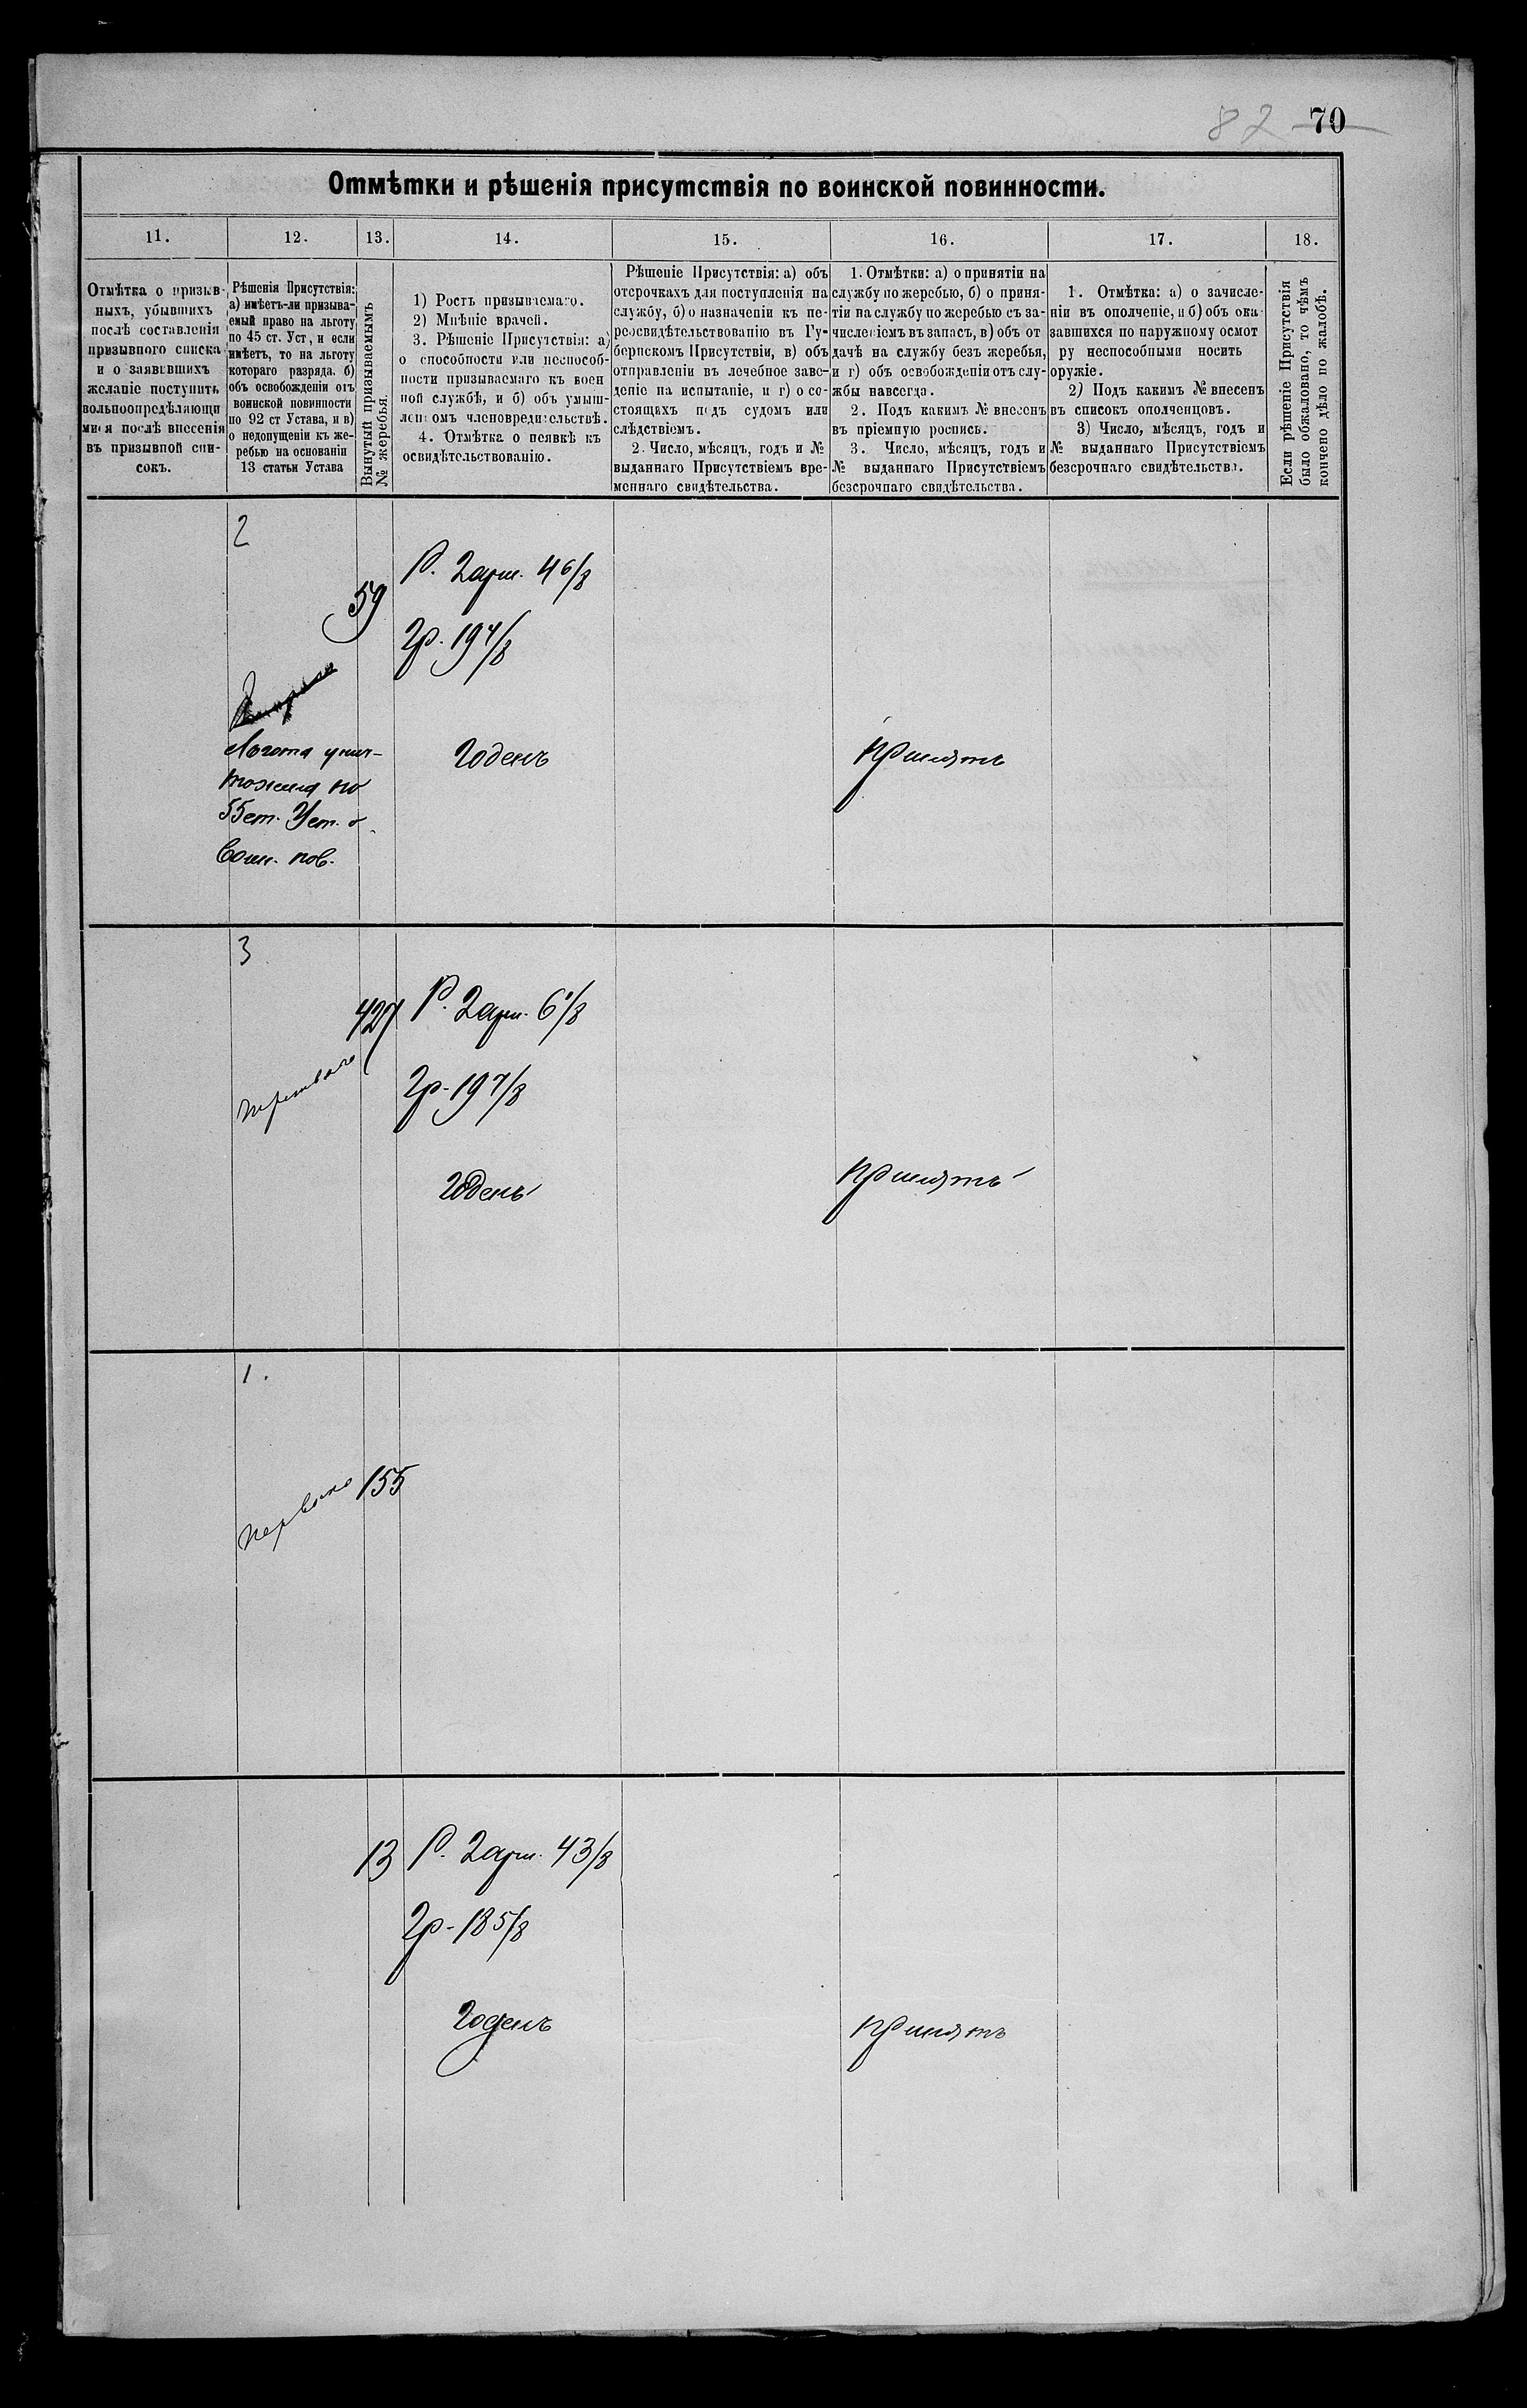 82 70
Отмѣтки и рѣшенія присутствія по воинской повинности.
11. 12. 13. 14. 15. 16. 17. 18.
Отмѣтка о призыв-
ныхъ, убывшихъ
послѣ составленія
призывного списка
и о заявившихъ
желаніе поступить
вольноопредѣляющи
мися послѣ внесенія
въ призывной спи-
сокъ.
Рѣшенія Присутствія:
а) имѣетъ-ли призыва-
емый право на льготу
по 45 ст. Уст, и если
имѣетъ, то на льготу
котораго разряда. б)
объ освобожденіи отъ
воинской повинности
по 92 ст Устава, и в)
о недопущеніи къ же-
ребью на основаніи
13 статьи Устава
Вынутый призываемымъ
№ жеребья.
1) Ростъ призываемаго.
2) Мнѣніе врачей.
3. Рѣшеніе Присутствія: а)
о способности или неспособ-
ности призываемаго къ воен
ной службѣ, и б) объ умыш-
ленномъ членовредительствѣ.
4. Отмѣтка о неявкѣ къ
освидѣтельствованію.
Рѣшеніе Присутствія: а) объ
отсрочкахъ для поступленія на
службу, б) о назначеніи къ пе-
реосвидѣтельствованію въ Гу-
бернскомъ Присутствіи, в) объ
отправленіи въ лечебное заве-
деніе на испытаніе, и г) о со-
стоящихъ подъ судомъ или
слѣдствіемъ.
2. Число, мѣсяцъ, годъ и №
выданнаго Присутствіемъ вре-
меннаго свидѣтельства.
1. Отмѣтки: а) о принятіи на
службу по жеребью, б) о приня-
тіи на службу по жеребью съ за-
численіемъ въ запасъ, в) объ от
дачѣ на службу безъ жеребья,
и г) объ освобожденіи отъ слу-
жбы навсегда.
2. Подъ какимъ № внесенъ
въ пріемную роспись.
3. Число, мѣсяцъ, годъ и
№ выданнаго Присутствіемъ
безсрочнаго свидѣтельства.
1. Отмѣтка: а) о зачисле-
ніи въ ополченіе, и б) объ ока
завшихся по наружному осмот
ру неспособными носить
оружіе.
2) Подъ какимъ № внесенъ
въ списокъ ополченцовъ.
3) Число, мѣсяцъ, годъ и
№ выданнаго Присутствіемъ
безсрочнаго свидѣтельства.
Если рѣшеніе Присутствія
было обжаловано, то чѣмъ
кончено дѣло по жалобѣ.
2
59
Р. 2 арш. 4 6/8
Гр. 19 4/8
Льгота унич-
тожена по
55 ст. Уст. о
Воин. пов.
годенъ
принять
3
427
Р. 2 арш. 6 1/8
Гр. 19 7/8
третьяго
годенъ
принять
1.
155
13
Р. 2 арш. 4 3/8
Гр. 18 5/8
годенъ
принять